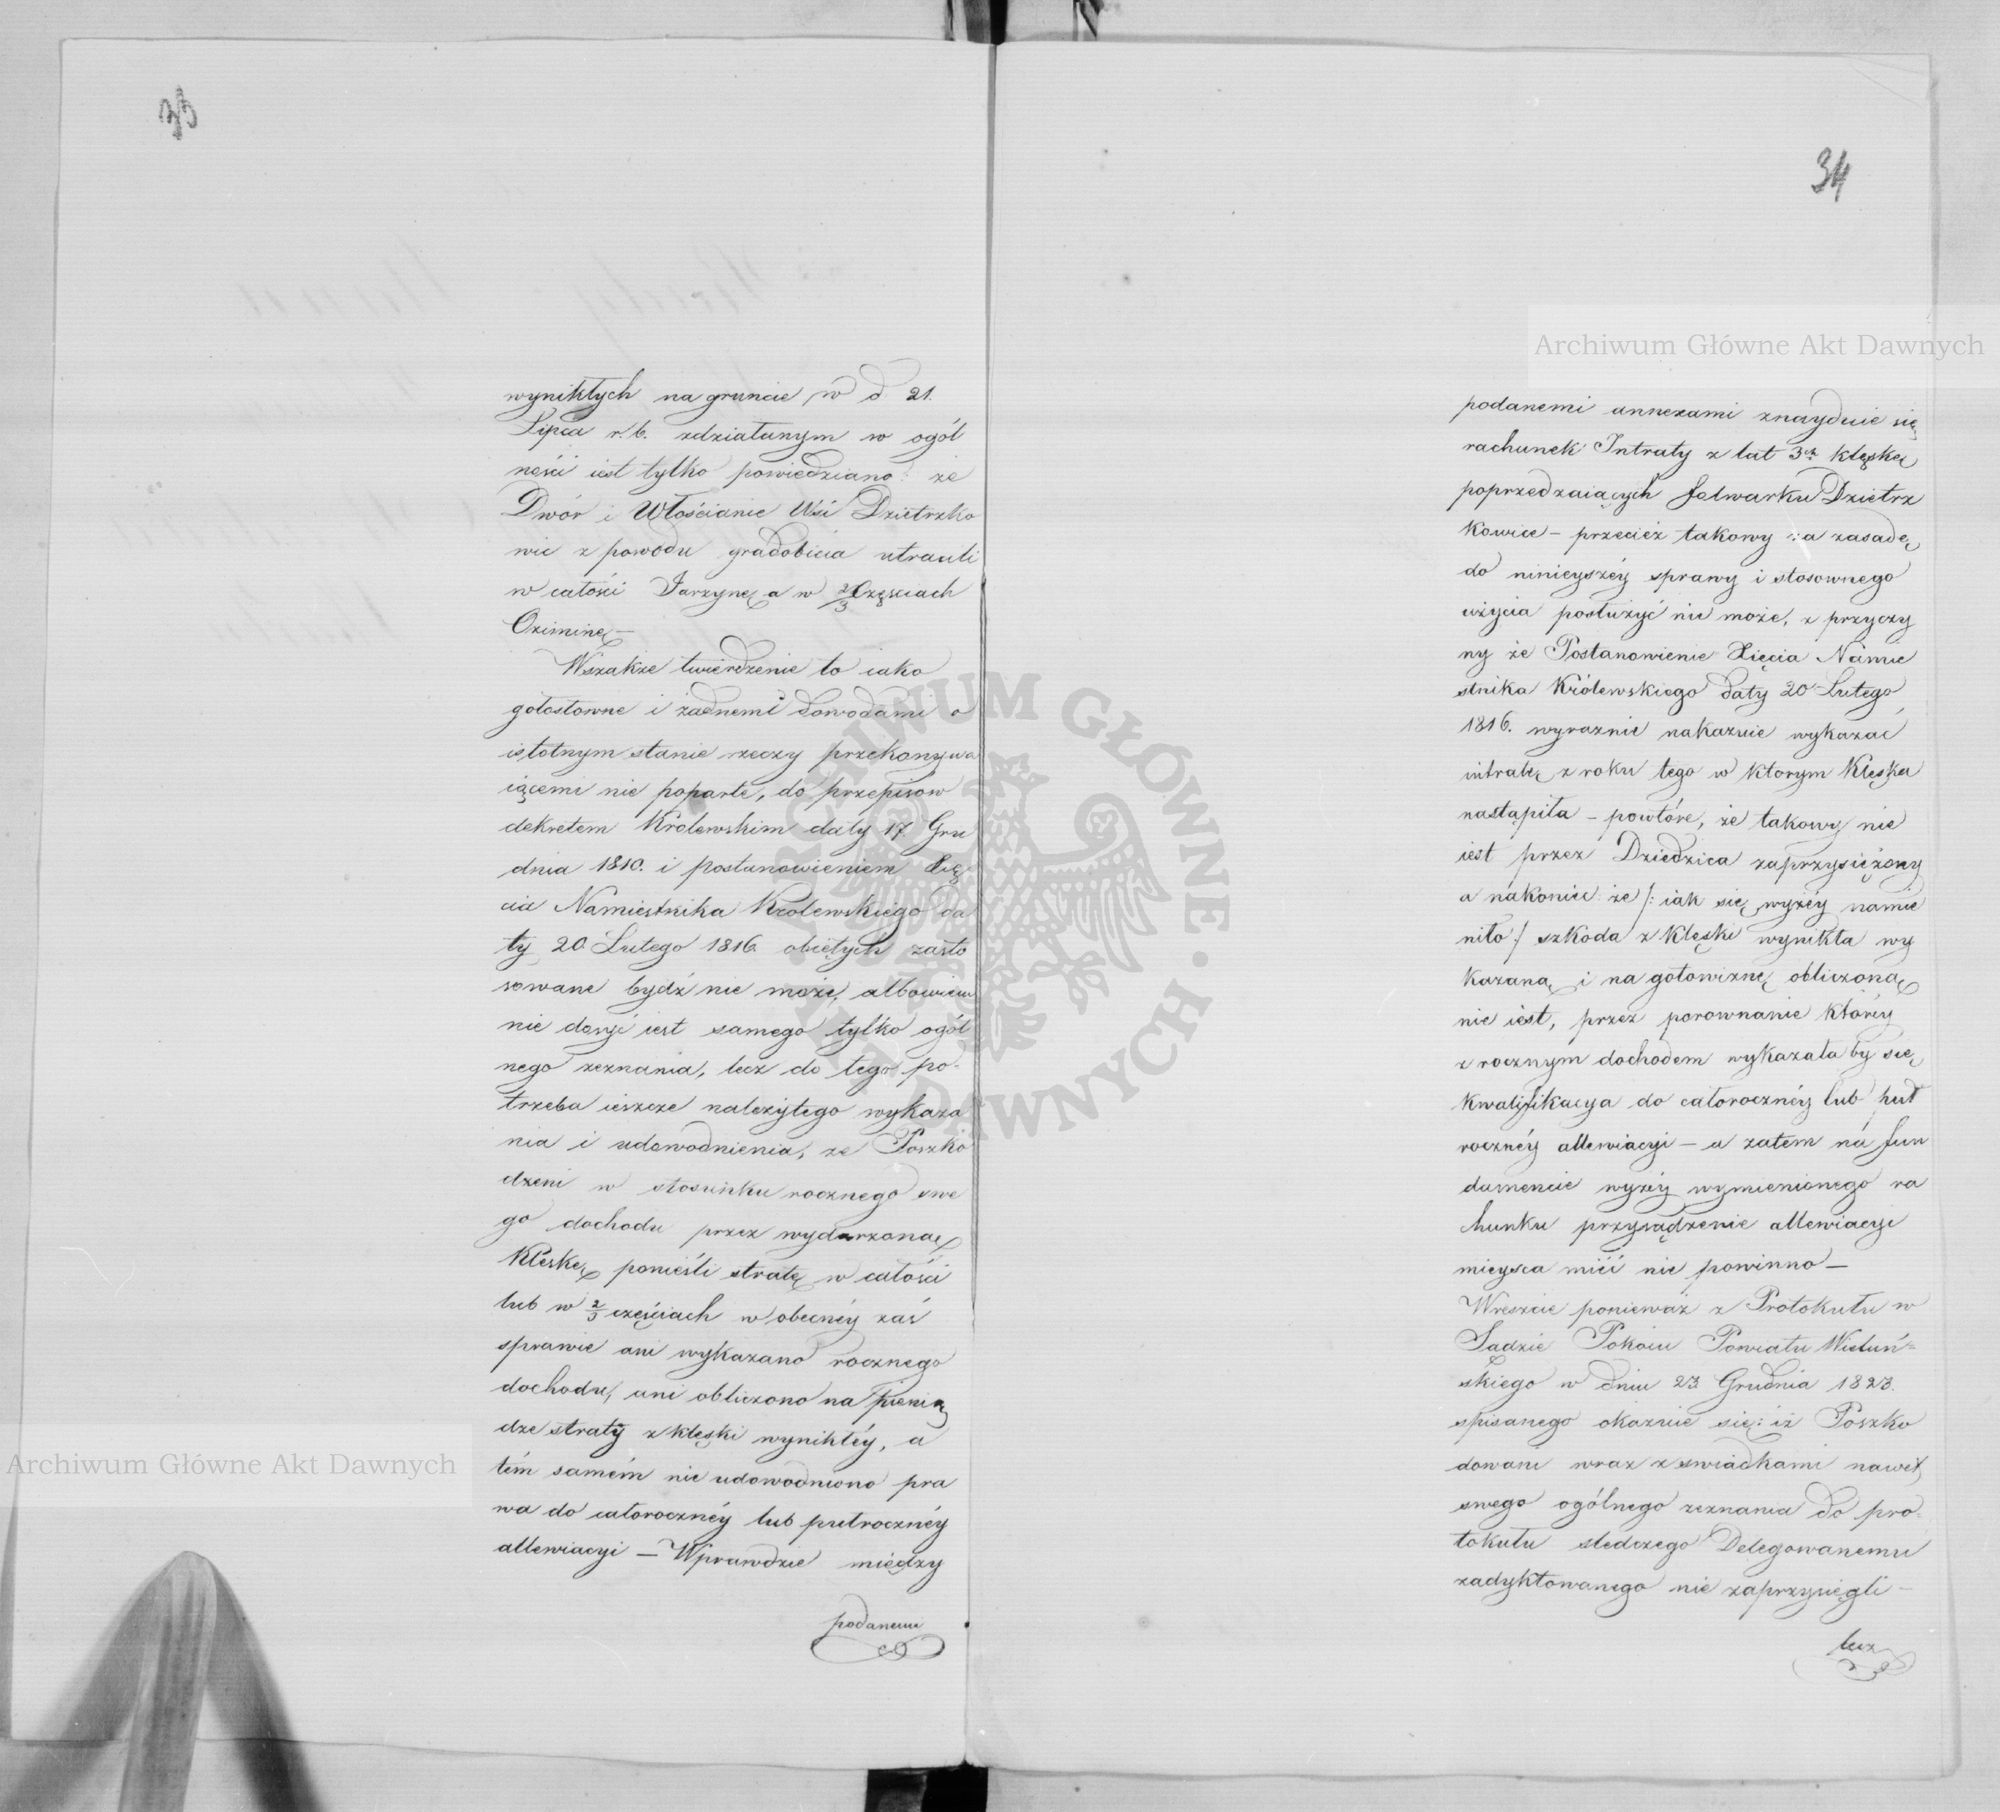 33
wynikłych na gruncie w d 21.
Lipca r. b. zdziałanym w ogól
ności iest tylko powiedziano: że
Dwór i Włościanie Wsi Dzietrzko
wic z powodu gradobicia utracili
w całości Jarzynę a w 2/3 Częściach
Oziminę —
Wszakże twierdzenie to iako
gołosłowne i żadnemi dowodami o
istotnym stanie rzeczy przekonywa
iącemi nie poparte, do przepisów
dekretem Królewskim daty 17 Gru
dnia 1810. i postanowieniem Xię
cia Namiestnika Królewskiego da
ty 20 Lutego 1816 obiętych zasto
sowane bydź nie może, albowiem
nie dosyć iest samego tylko ogól
nego zeznania, lecz do tego po-
trzeba ieszcze należytego wykaza
nia i udowodnienia, że Poszko
dzeni w stosunku rocznego swe
go dochodu przez wydarzoną
Klęskę ponieśli stratę w całości
lub w 2/3 częściach w obecnéy zaś
sprawie ani wykazano rocznego
dochodu, ani obliczono na pienią
dze straty z klęski wynikłéy, a
tém samém nie udowodniono pra
wa do całorocznéy lub półrocznéy
allewiacyi — Wprawdzie między
podanemi
34
podanemi annexami znayduie się
rachunek Intraty z lat 3ch klęskę
poprzedzaiących folwarku Dzietrz
kowice — przecież takowy za zasadę
do ninieyszéy sprawy i stosownego
użycia posłużyć nie może, z przyczy
ny że Postanowienie Xięcia Namie
stnika Królewskiego daty 20 Lutego
1816. wyraznie nakazuie wykazać
intratę z roku tego w ktorym Klęska
nastąpiła — powtóre, że takowy nie
iest przez Dziedzica zaprzysiężony
a nakoniec że /: iak się wyżéy namie
niło :/ szkoda z klęski wynikła wy
kazaną i na gotowiznę obliczoną
nie iest, przez porownanie którey
z rocznym dochodem wykazała by się
kwalifikacya do całorocznéy lub puł
rocznéy allewiacyi — a zatem na fun
damencie wyżéy wymienionego ra
chunku przysądzenie allewiacyi
mieysca mieć nie powinno —
Wreszcie ponieważ z Protokułu w
Sądzie Pokoiu Powiatu Wieluń=
skiego w dniu 23 Grudnia 1823.
spisanego okazuie się: iż Poszko
dowani wraz z swiadkami nawet
swego ogólnego zeznania do pro-
tokułu sledczego Delegowanemu
zadyktowanego nie zaprzysięgli —
lecz
Archiwum Główne Akt Dawnych
Archiwum Główne Akt Dawnych
ARCHIWUM GŁÓWNE AKT DAWNYCH